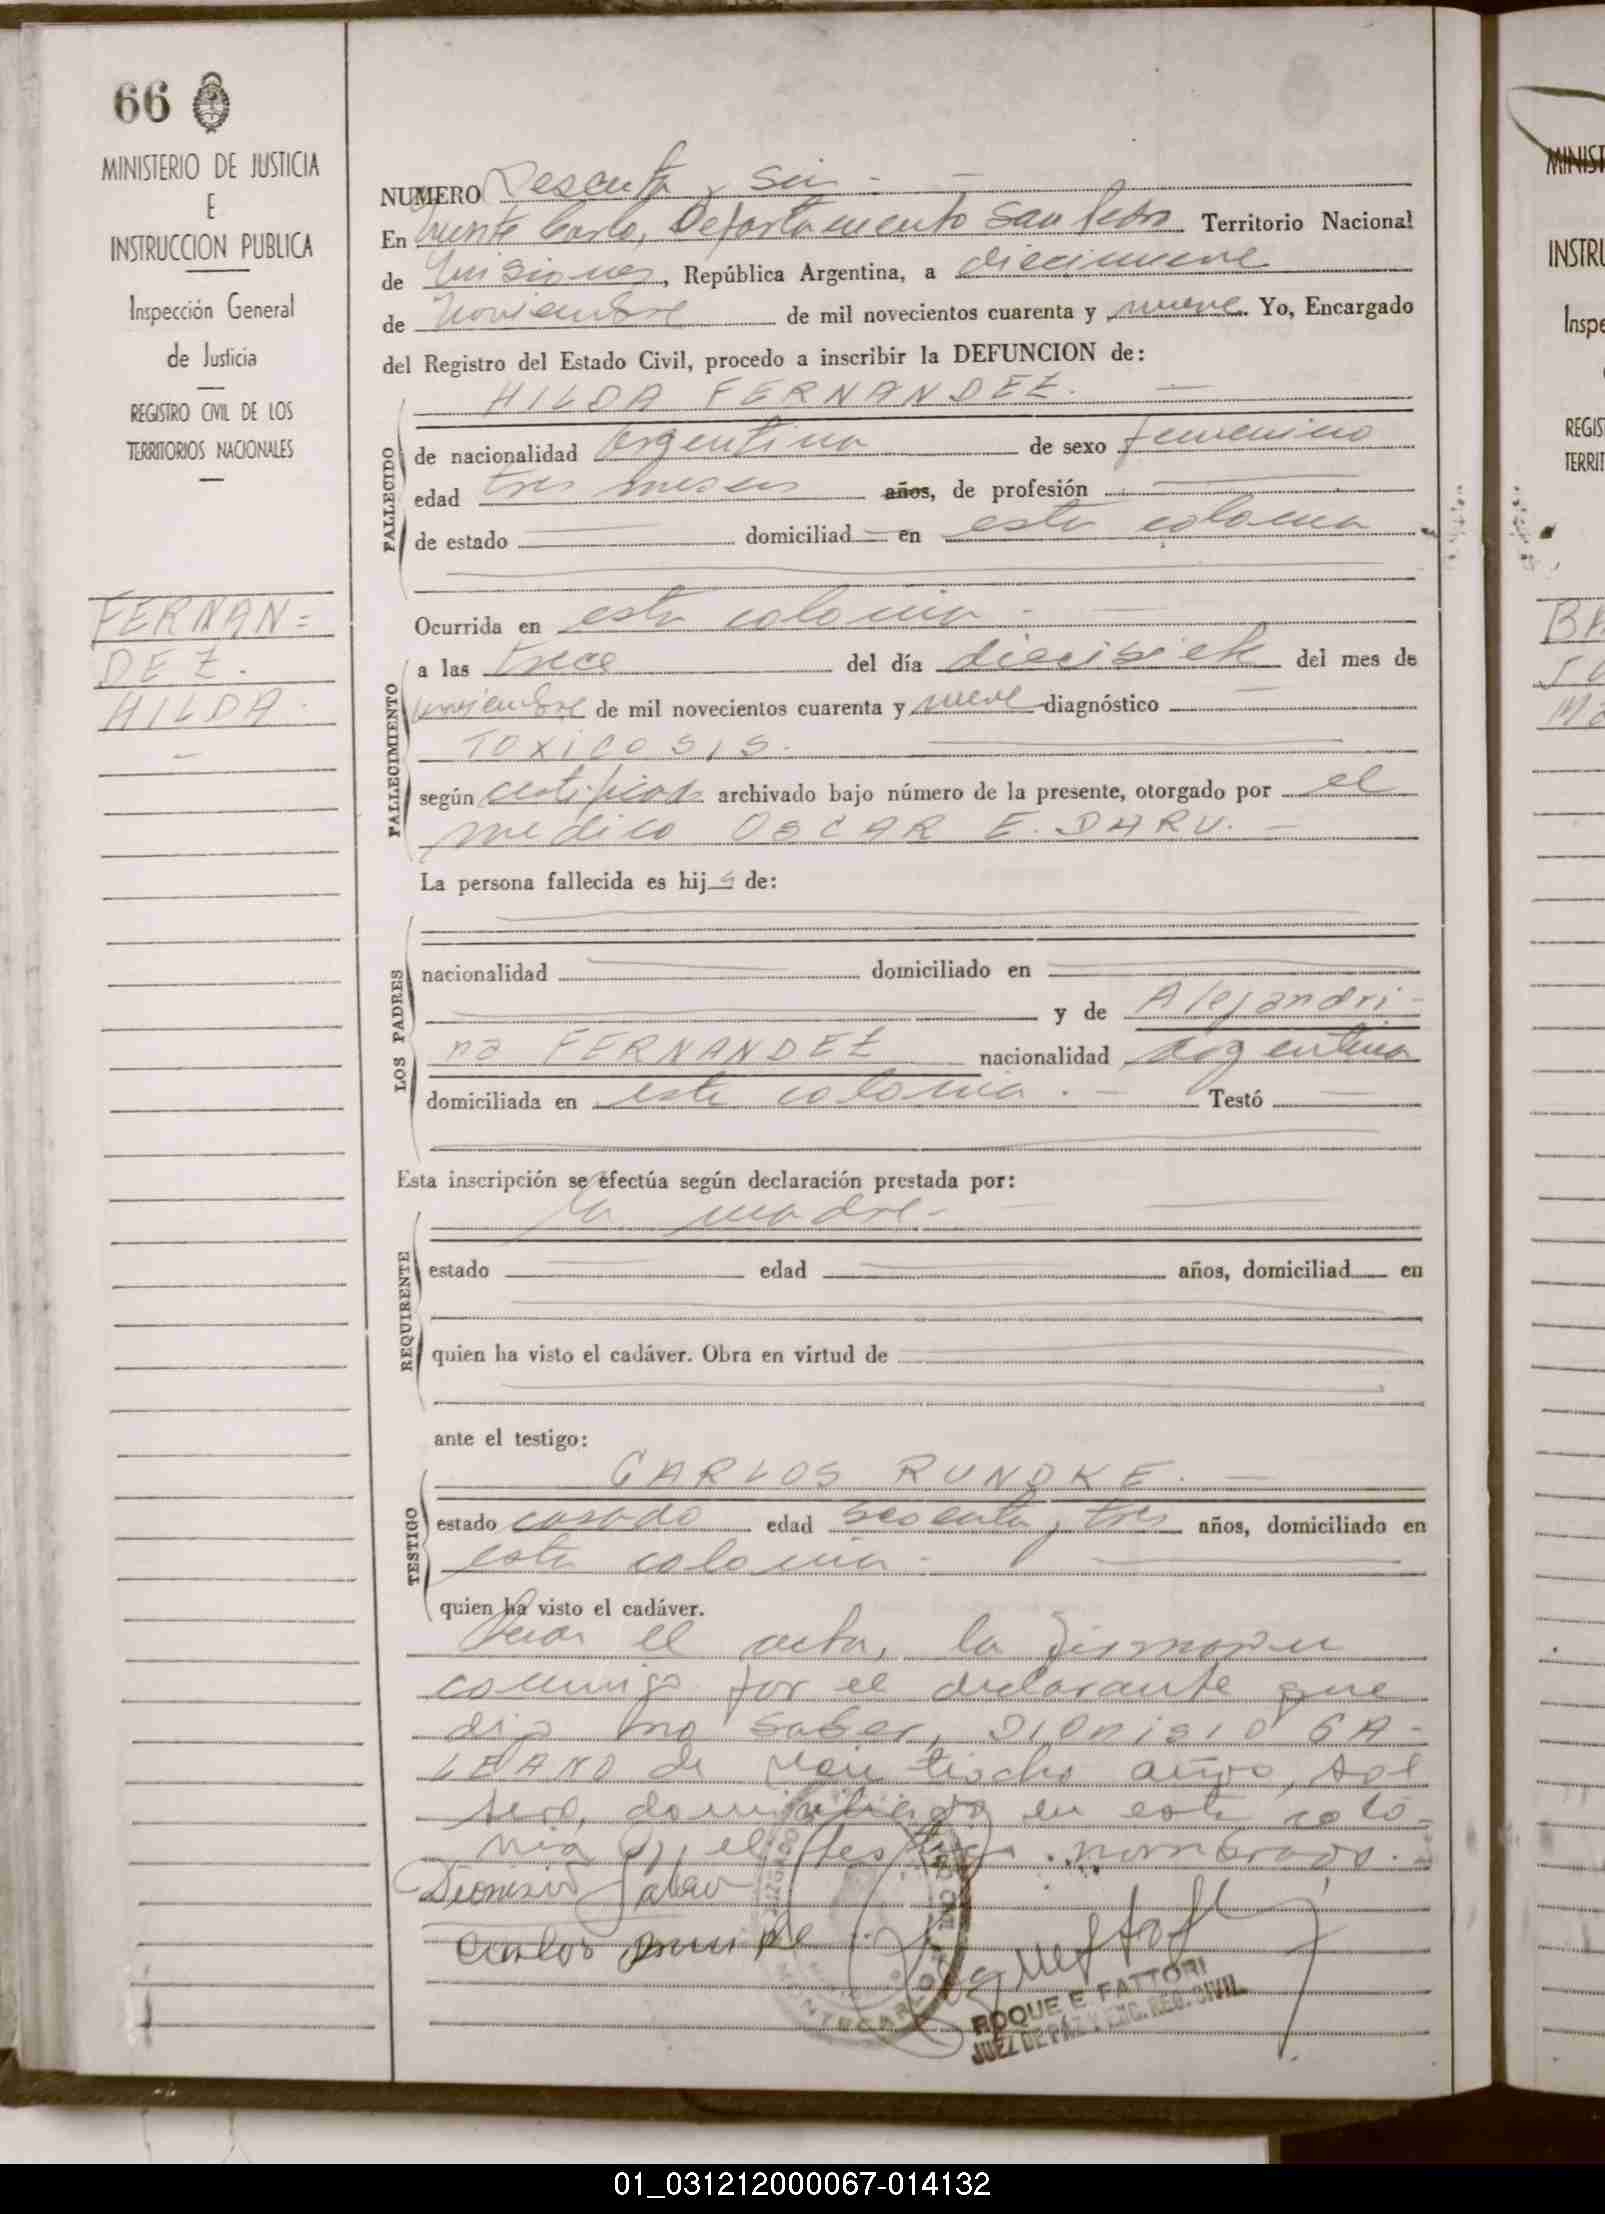 66
MINISTERIO DE JUSTICIA
E
INSTRUCCION PUBLICA
Inspección General
de Justicia
REGISTRO CIVIL DE LOS
TERRITORIOS NACIONALES
FERNAN=
DEZ.
HILDA.
NUMERO Sesenta y seis.
En Monte Carlo, Departamento San Pedro Territorio Nacional
de Misiones, República Argentina, a diecinueve
de Noviembre de mil novecientos cuarenta y nueve. Yo, Encargado
del Registro del Estado Civil, procedo a inscribir la DEFUNCION de:
HILDA FERNANDEZ.
FALLECIDO
de nacionalidad Argentina de sexo femenino
edad tres meses años, de profesión
de estado domiciliad en esta colonia
Ocurrida en esta colonia.
FALLECIMIENTO
a las trece del día diecisiete del mes de
noviembre de mil novecientos cuarenta y nueve diagnóstico
TOXICOSIS.
según certificado archivado bajo número de la presente, otorgado por el
medico OSCAR E. DARU.
La persona fallecida es hija de:
LOS PADRES
nacionalidad domiciliado en
y de Alejandri-
na FERNANDEZ nacionalidad argentina
domiciliada en esta colonia. Testó
Esta inscripción se efectúa según declaración prestada por:
la madre.
REQUIRENTE
estado edad años, domiciliad en
quien ha visto el cadáver. Obra en virtud de
ante el testigo:
CARLOS RUNDKE.
TESTIGO
estado casado edad sesenta y tres años, domiciliado en
esta colonia.
quien ha visto el cadáver.
el acta, la firmaron
conmigo por el declarante que
dijo no saber, DIONISIO GA-
LEANO de veintiocho años, sol
tero, domiciliado en esta colo-
nia y el testigo nombrado.
Dionisio Galeano
Carlos
ROQUE E. FATTORI
JUEZ DE PAZ Y ENC. REG. CIVIL
MINIST
INSTRU
Inspe
REGIS
TERRIT
01_031212000067-014132